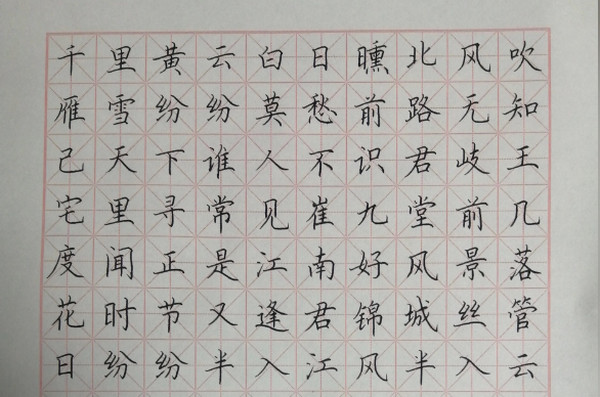 千里黄云白日曛北风吹
雁雪纷纷莫愁前路无知
己天下谁人不识君岐王
宅里寻常见崔九堂前几
度闻正是江南好风景落
花时节又逢君锦城丝管
日纷纷半入江风半入云